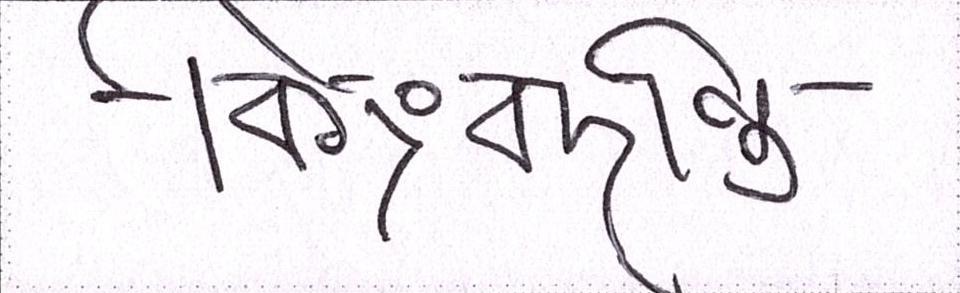 কিংবদন্তি